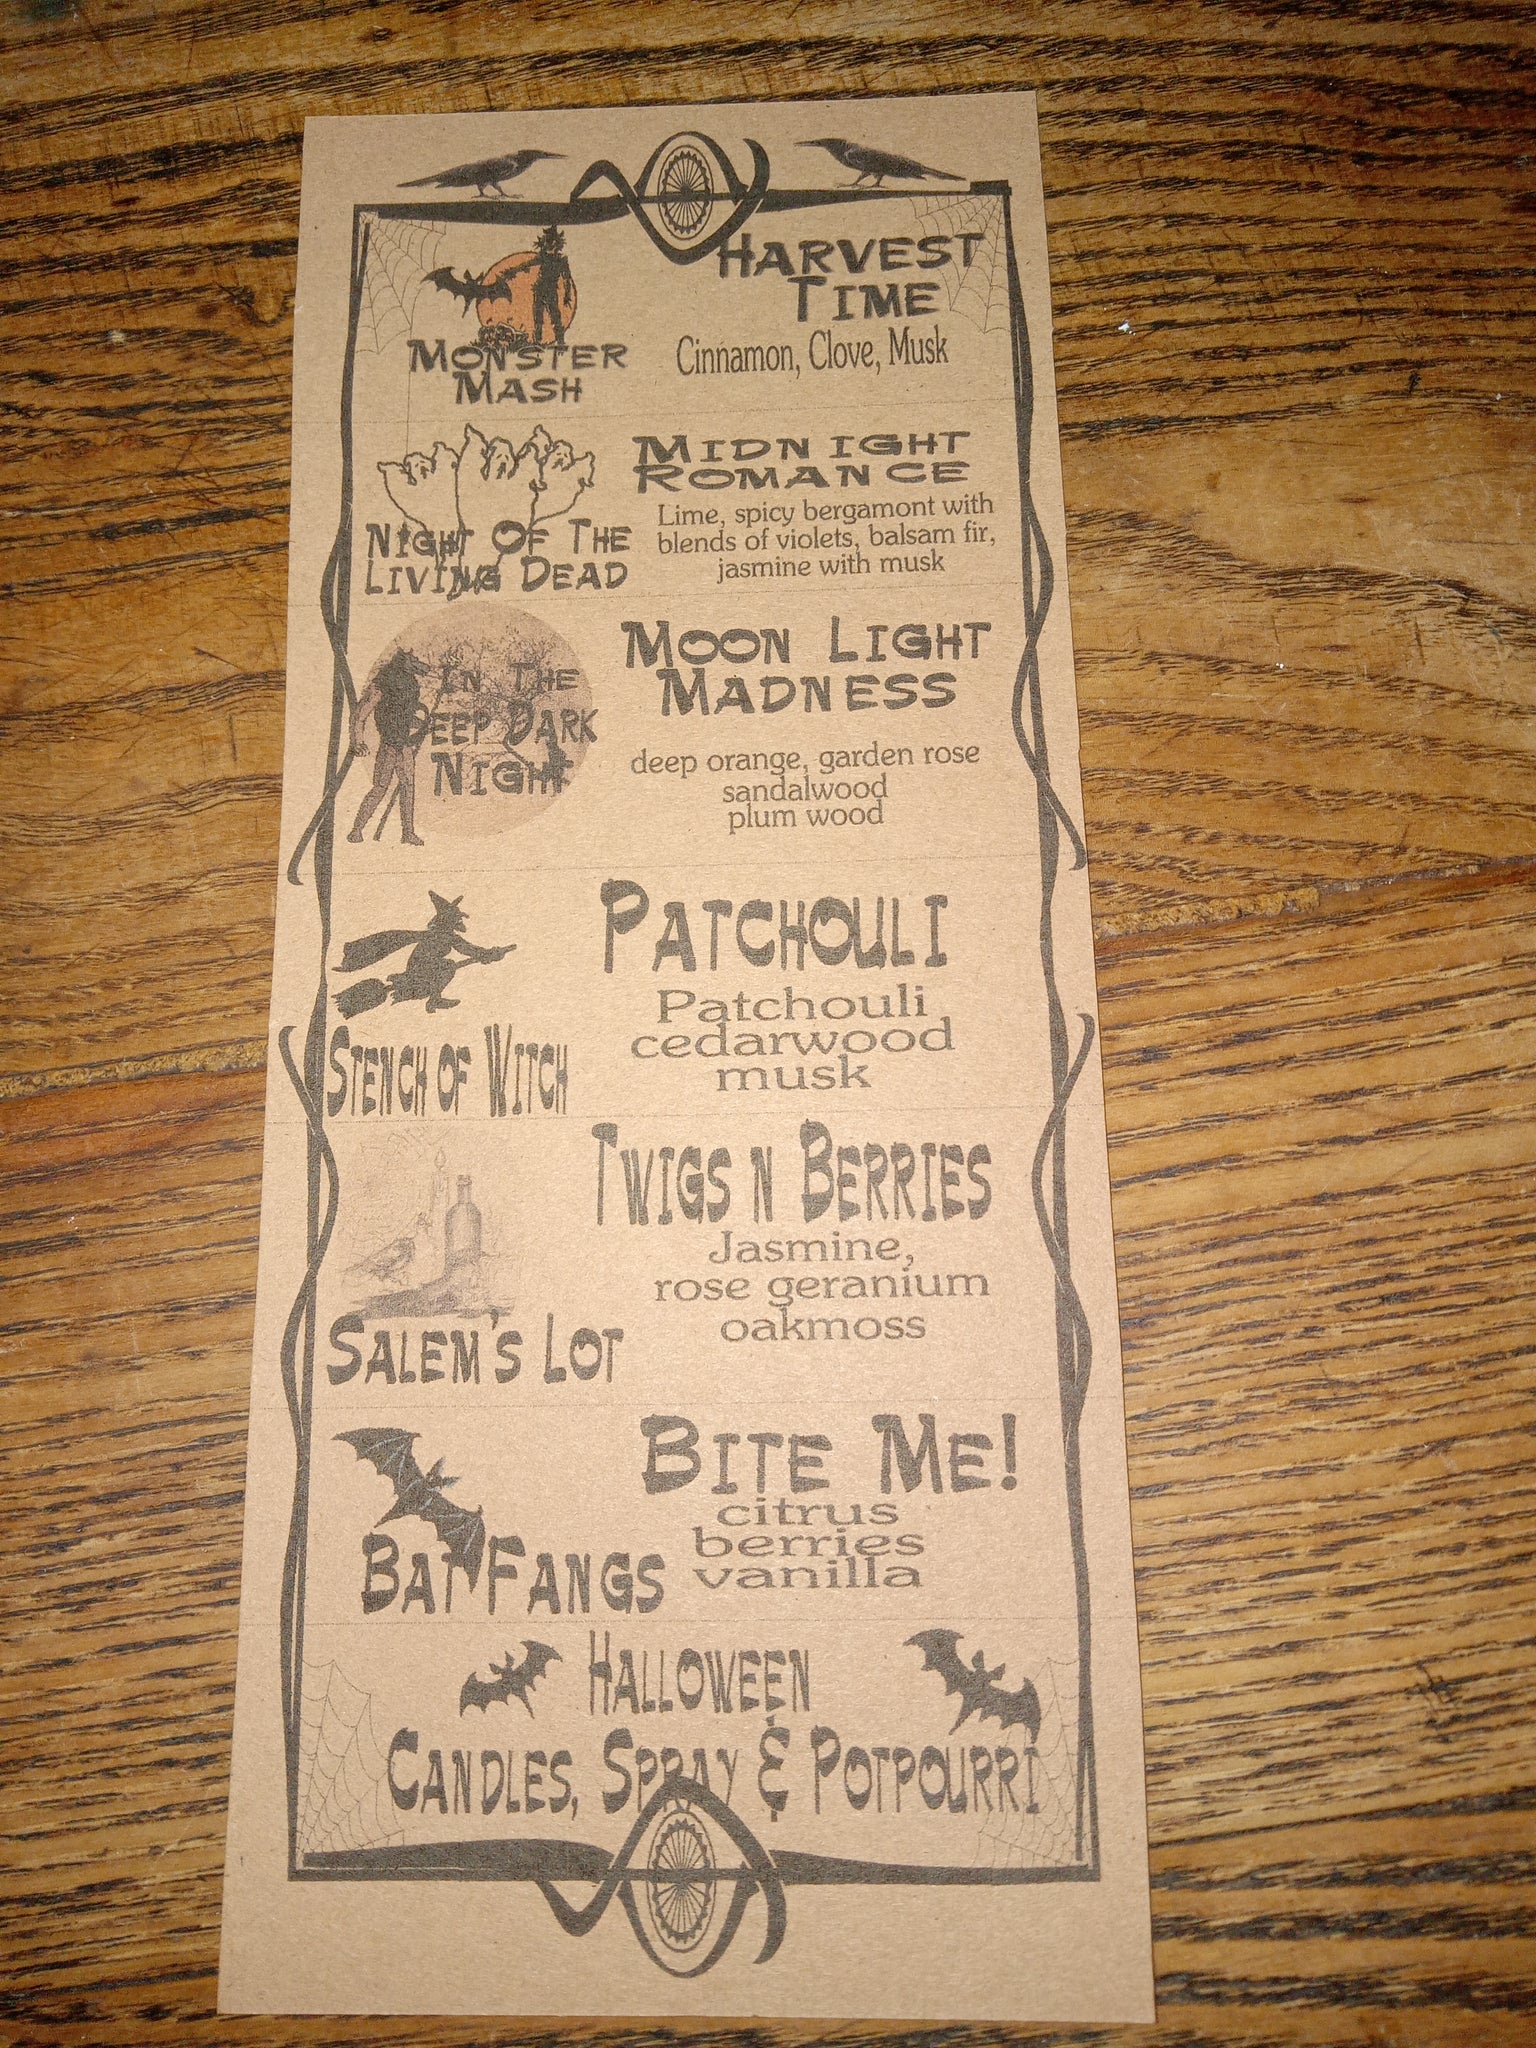 Monster
Mash
Harvest
Time
Cinnamon, Clove, Musk
Night Of The
Living Dead
Midnight
Romance
Lime, spicy bergamont with
blends of violets, balsam fir,
jasmine with musk
In The
Deep Dark
Night
Moon Light
Madness
deep orange, garden rose
sandalwood
plum wood
Stench of Witch
Patchouli
Patchouli
cedarwood
musk
Salem's Lot
Twigs n Berries
Jasmine,
rose geranium
oakmoss
Bat Fangs
Bite Me!
citrus
berries
vanilla
Halloween
Candles, Spray & Potpourri